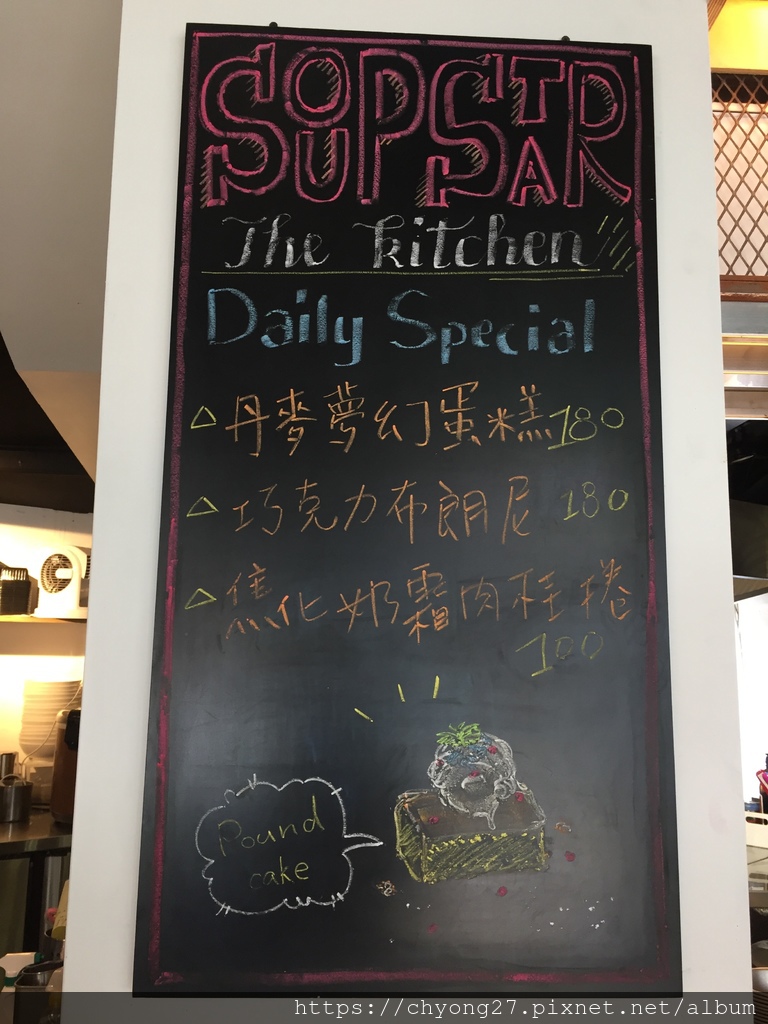 SOUP STAR
The kitchen
Daily Special
△丹麥夢幻蛋糕 180
△巧克力布朗尼 180
△焦化奶霜肉桂捲
100
Pound
cake
https://chyong27.pixnet.net/album